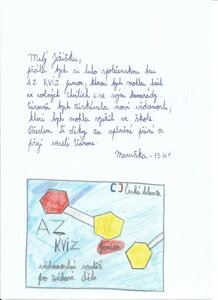 Milý Ježíšku,
přála bych si tuto společenskou hru
AZ KVIZ junior, kterou bych mohla hrát
ve volných chvílích i se svými kamarády.
Zároveň bych získávala nové vědomosti,
které bych mohla využít ve škole.
Předem Ti děkuji za splnění přání a
přeji veselé Vánoce.
Maruška - 13 let
Česká televize
AZ
KVIZ
junior
vědomostní soutěž
pro zvídavé děti